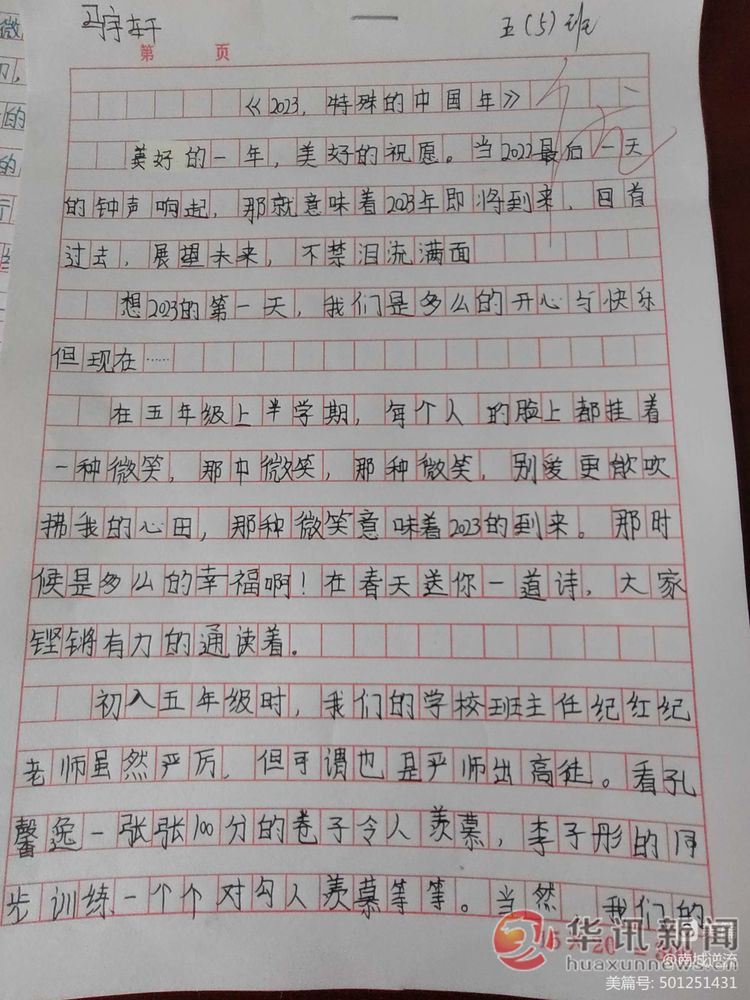 冯宇轩 五(5)班
第 页
《2023,特殊的中国年》
美好的一年,美好的祝愿。当2022最后一天
的钟声响起,那就意味着2023年即将到来,回首
过去,展望未来,不禁泪流满面
想2023的第一天,我们是多么的开心与快乐
但现在……
在五年级上半学期,每个人的脸上都挂着
一种微笑,那中微笑,那种微笑,别爱更能吹
拂我的心田,那种微笑意味着2023的到来。那时
候是多么的幸福啊!在春天送你一道诗,大家
铿锵有力的通读着。
初入五年级时,我们的学校班主任纪红纪
老师虽然严厉,但可谓也是严师出高徒。看孔
馨逸一张张100分的卷子令人羡慕,李子彤的同
步训练一个个对勾人羡慕等等。当然,我们的
15×20=300
华讯新闻
huaxunnews.cn
@南城逆流
美篇号: 501251431